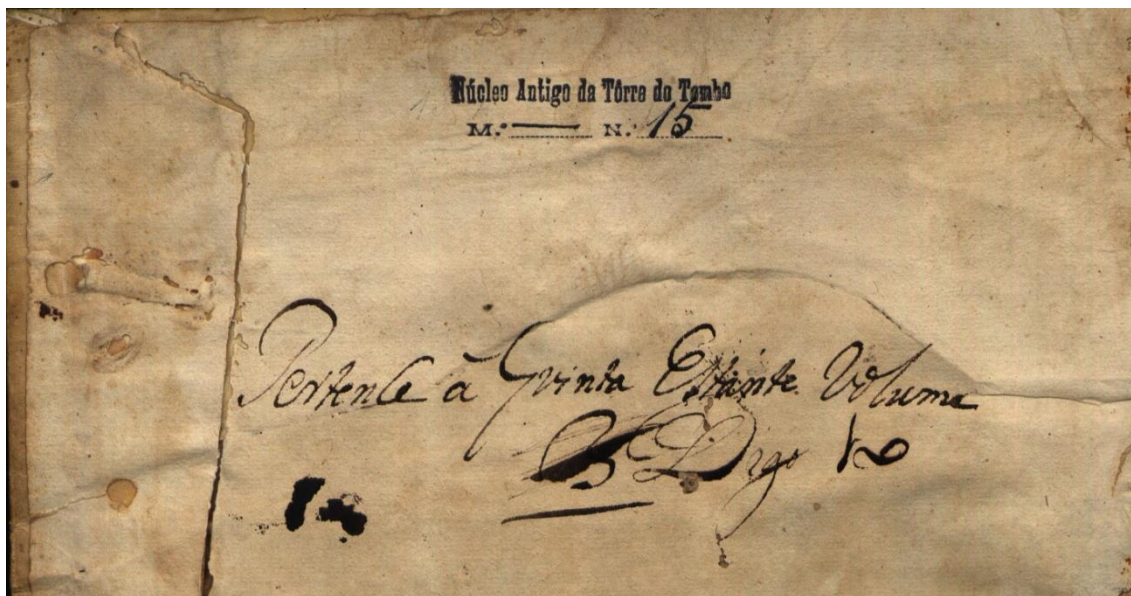 Núcleo Antigo da Tôrre do Tombo
M.º — N.º 15
Pertence a Quinta Estante Volume
Digo